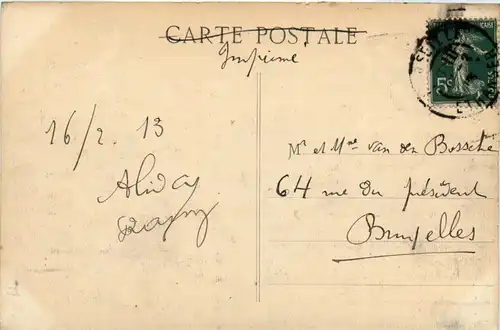 CARTE POSTALE
Imprimé
16/2. 13
Mr et Mme van den Bossche
64 rue du président
Bruxelles
5c